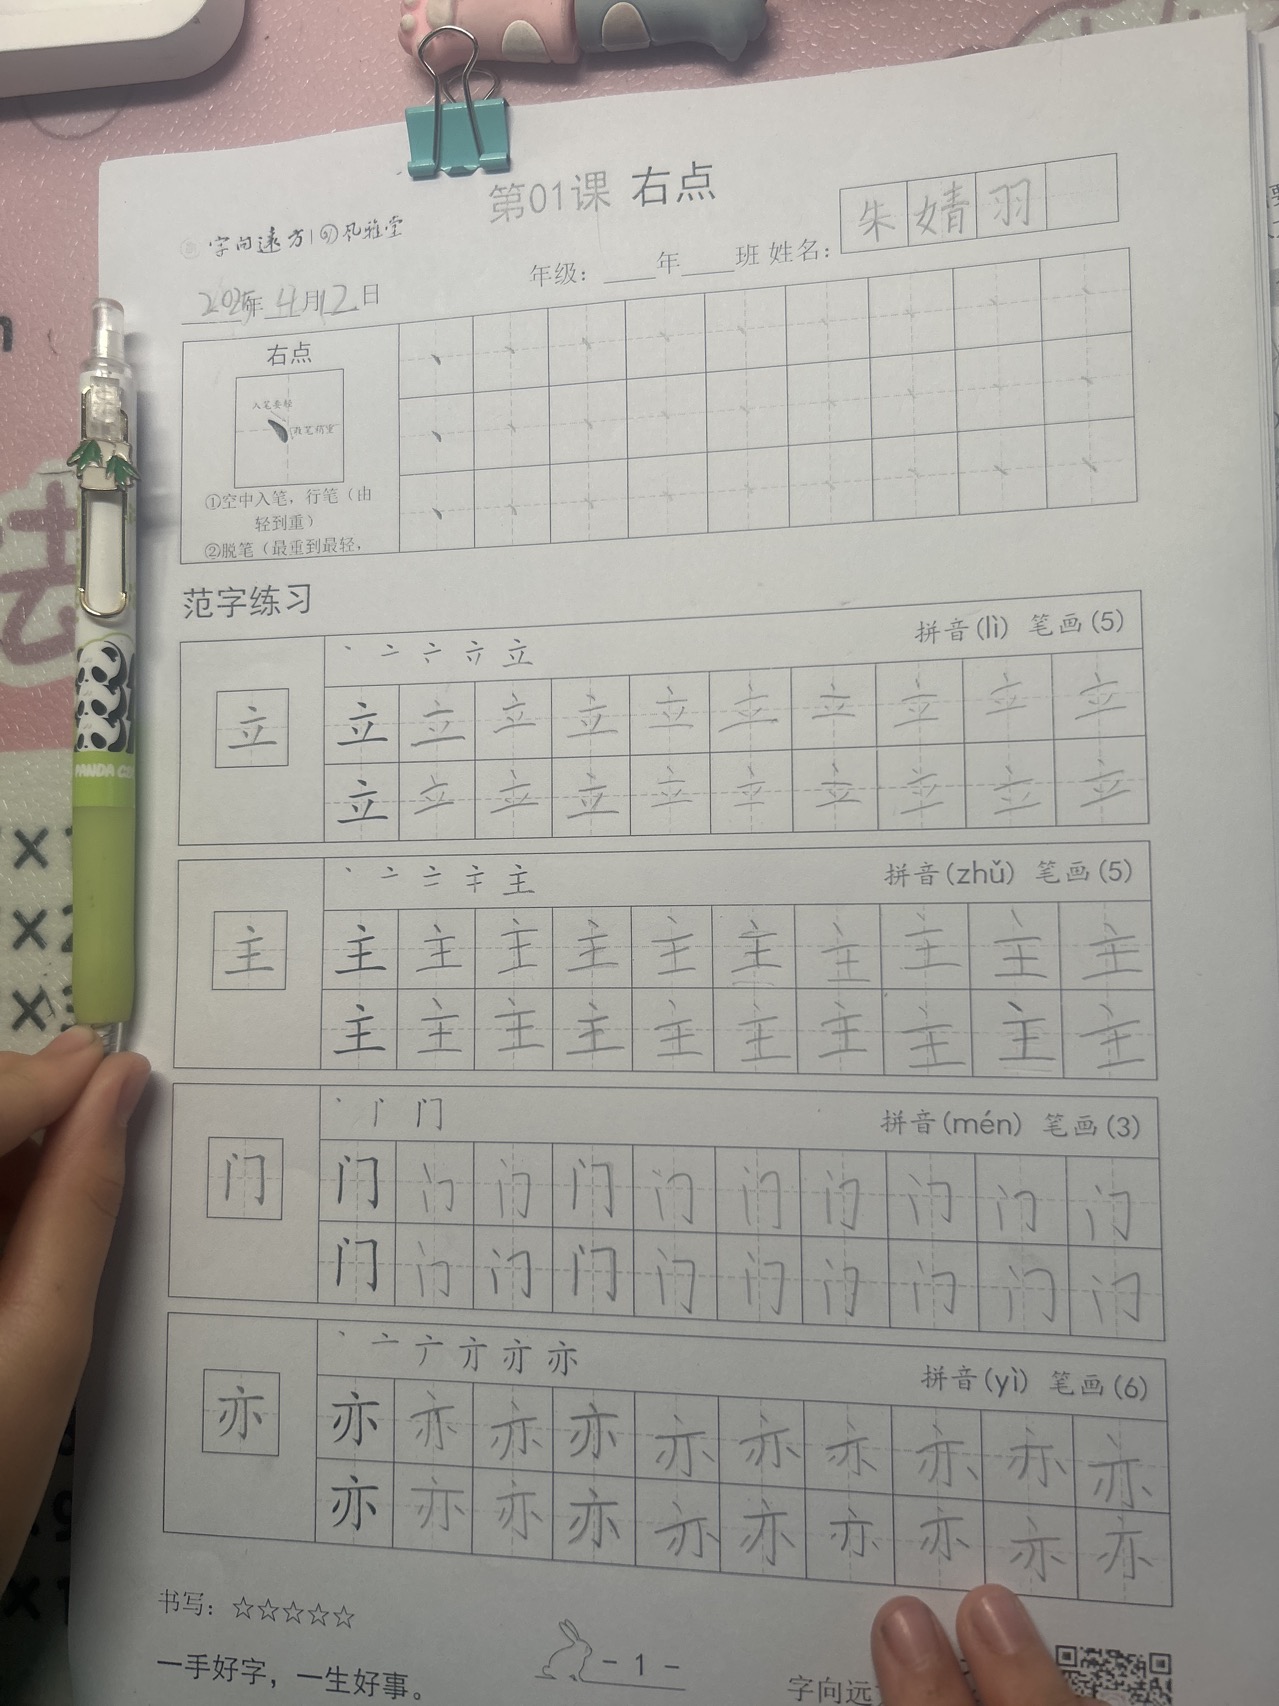 第01课 右点
字向遠方 风雅堂
年级：____年____班 姓名：朱婧羽
2025年4月12日
右点
入笔要轻
收笔稍重
①空中入笔，行笔（由
轻到重）
②脱笔（最重到最轻，
范字练习
拼音(lì) 笔画(5)
立
立立立立立立立立立立
立立立立立立立立立立
拼音(zhǔ) 笔画(5)
主
主主主主主主主主主主
主主主主主主主主主主
拼音(mén) 笔画(3)
门
门门门门门门门门门门
门门门门门门门门门门
拼音(yì) 笔画(6)
亦
亦亦亦亦亦亦亦亦亦亦
亦亦亦亦亦亦亦亦亦亦
书写：☆☆☆☆☆
一手好字，一生好事。
- 1 -
字向远
PANDA